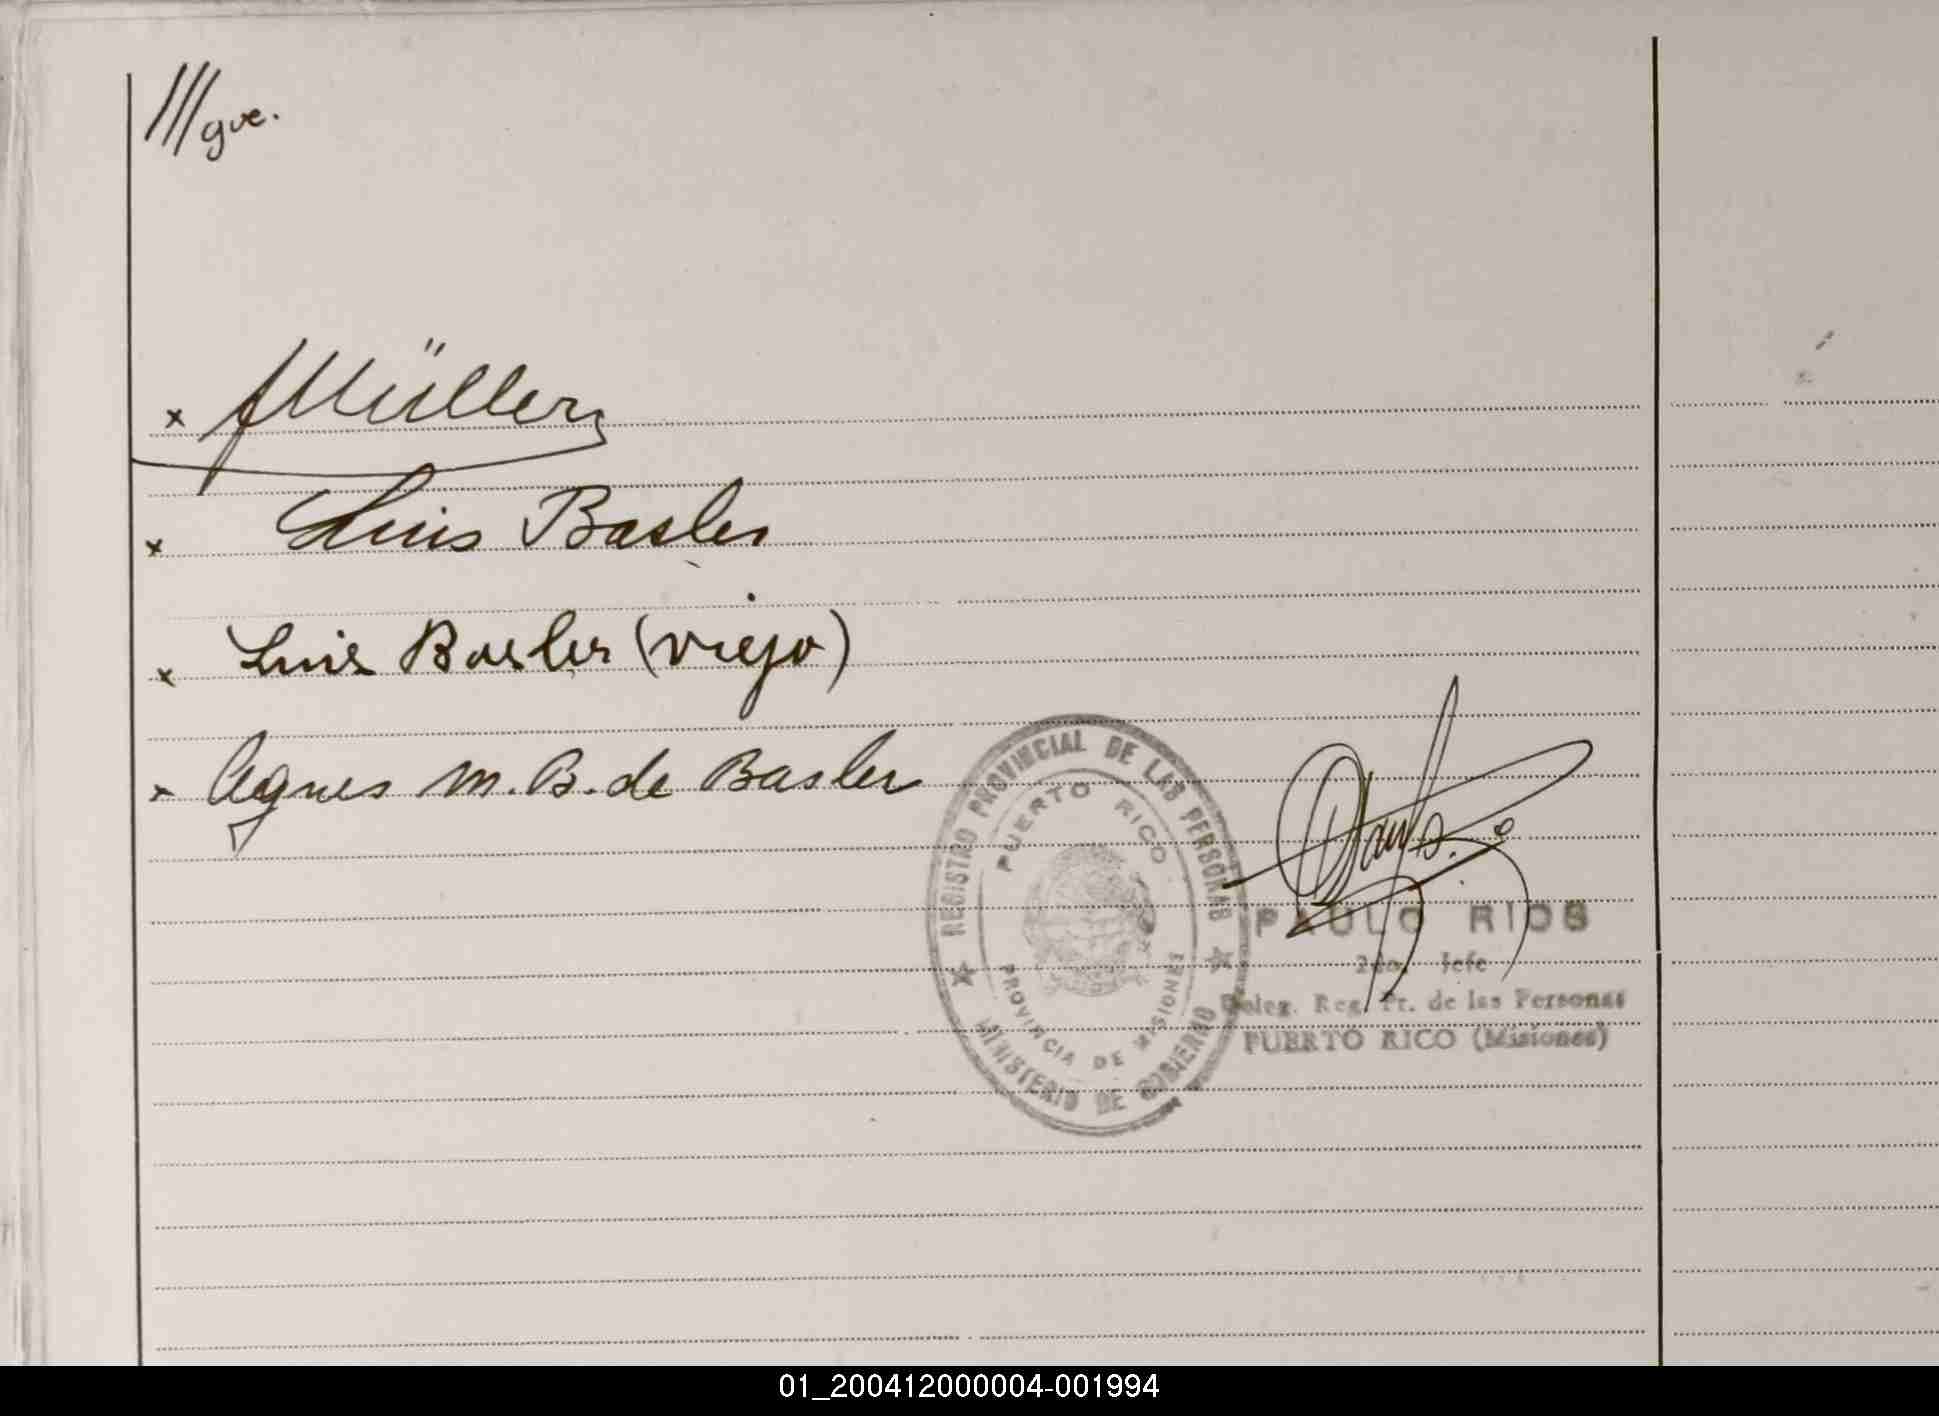 ///gue.
x Müller
x Luis Basler
x Luis Basler (viejo)
x Agnes M. B. de Basler
REGISTRO PROVINCIAL DE LAS PERSONAS
PUERTO RICO
PROVINCIA DE MISIONES
MINISTERIO DE GOBIERNO
PAULO RIOS
2do. Jefe
Deleg. Reg. Pr. de las Personas
PUERTO RICO (Misiones)
01_200412000004-001994